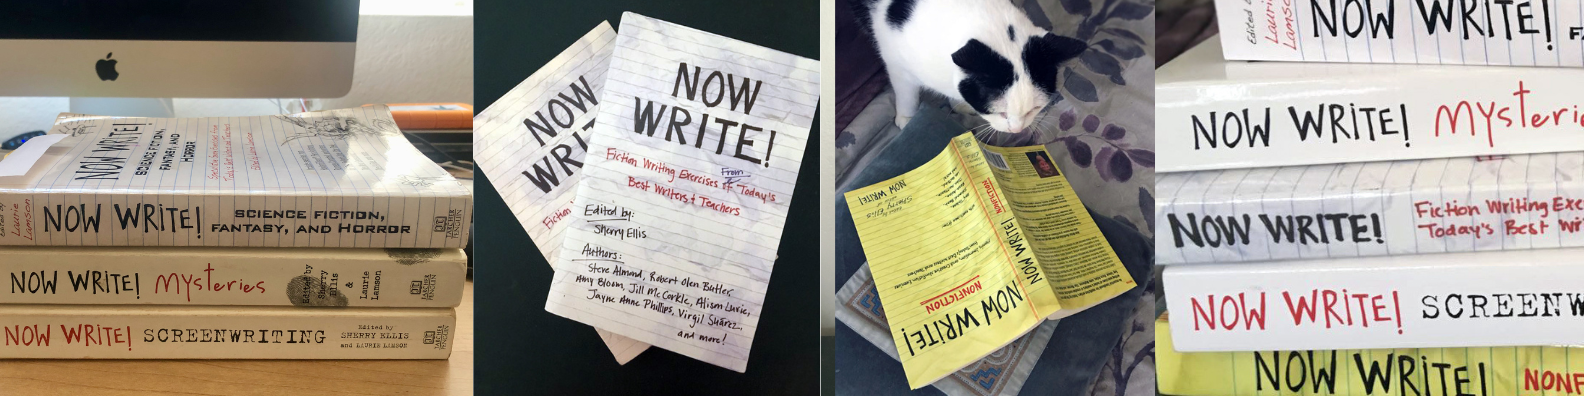 NOW WRITE!
SCIENCE FICTION,
FANTASY, AND
HORROR
Edited by
Laurie
Lamson
NOW WRITE!
SCIENCE FICTION,
FANTASY, AND HORROR
NOW WRITE!
Mysteries
Edited by
Sherry
Ellis
&
Laurie
Lamson
NOW WRITE!
SCREENWRITING
Edited by
SHERRY ELLIS
AND LAURIE LAMSON
NOW
WRI
Fiction
NOW
WRITE!
Fiction Writing Exercises from Today's
Best Writers & Teachers
Edited by:
Sherry Ellis
Authors:
Steve Almond, Robert Olen Butler,
Amy Bloom, Jill McCorkle, Alison Lurie,
Jayne Anne Phillips, Virgil Suárez,
and more!
NOW WRITE!
NONFICTION
Sherry Ellis
NOW WRITE!
NONFICTION
NOW WRITE!
Edited by
Laurie
Lamson
NOW WRITE!
NOW WRITE!
Mysterie
NOW WRITE!
Fiction Writing Exe
Today's Best Wri
NOW WRITE!
SCREENW
NOW WRITE!
NONF